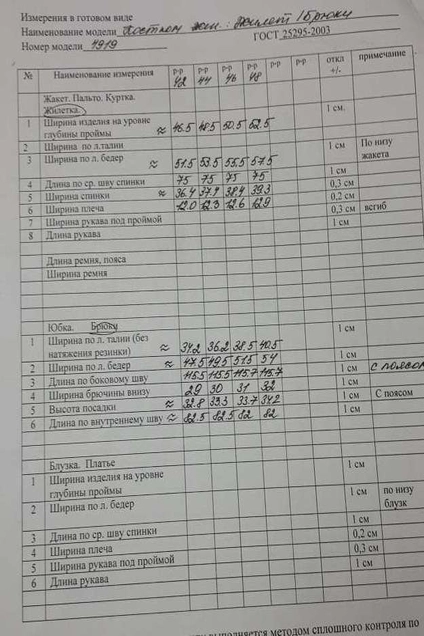 Измерения в готовом виде
Наименование модели Костюм жен.: Жилет/Брюки
Номер модели 4919 ГОСТ 25295-2003
№ Наименование измерения р-р 42 р-р 44 р-р 46 р-р 48 р-р р-р р-р откл +/- примечание
Жакет. Пальто. Куртка.
Жилетка.
1 Ширина изделия на уровне глубины проймы ≈ 46.5 48.5 50.5 52.5 1 см.
2 Ширина по л.талии
3 Ширина по л. бедер ≈ 51.5 53.5 55.5 57.5 1 см По низу жакета
4 Длина по ср. шву спинки 75 75 75 75 1 см
5 Ширина спинки ≈ 36.4 37.4 38.4 39.3 0,3 см
6 Ширина плеча 12.0 12.3 12.6 12.9 0,2 см
7 Ширина рукава под проймой 0,3 см всгиб
8 Длина рукава 1 см
Длина ремня, пояса
Ширина ремня
Юбка. Брюки
1 Ширина по л. талии (без натяжения резинки) ≈ 34.2 36.2 38.5 40.5 1 см
2 Ширина по л. бедер ≈ 47.5 49.5 51.5 54 1 см
3 Длина по боковому шву 115.5 115.5 115.7 115.7 1 см с поясом
4 Ширина брючины внизу 29 30 31 32 1 см
5 Высота посадки ≈ 32.8 33.3 33.7 34.2 1 см С поясом
6 Длина по внутреннему шву ≈ 82.5 82.5 82 82 1 см
Блузка. Платье
1 Ширина изделия на уровне глубины проймы 1 см
2 Ширина по л. бедер 1 см по низу блузк
3 Длина по ср. шву спинки 1 см
4 Ширина плеча 0,2 см
5 Ширина рукава под проймой 0,3 см
6 Длина рукава 1 см
выполняется методом сплошного контроля по